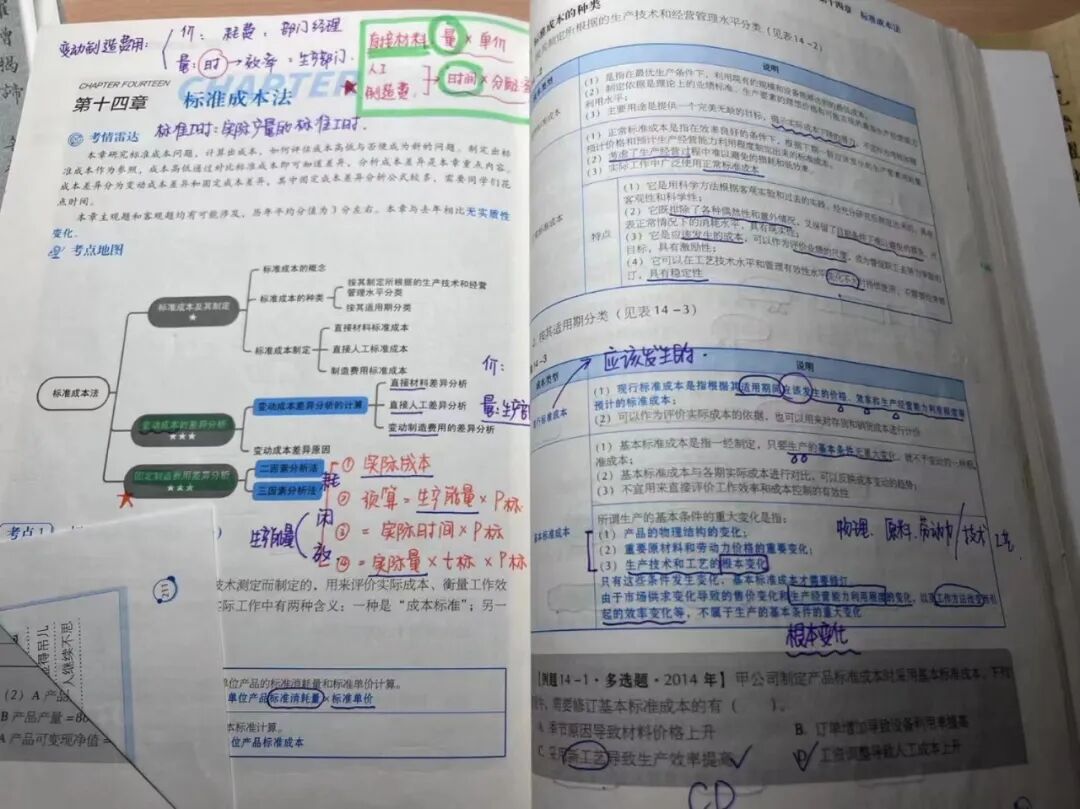 变动制造费用：
价： 耗费，部门经理
量：时→效率=生产部门.
直接材料 量×单价
人工
制造费
时间×分配
CHAPTER FOURTEEN
第十四章 标准成本法
标准工时：实际产量的标准工时.
考情雷达
本章研究标准成本问题，计算出成本，如何评估成本高低与否便成为新的问题。制定出标
准成本作为参照，成本高低通过对比标准成本即可知道差异，分析成本差异是本章重点内容。
成本差异分为变动成本差异和固定成本差异，其中固定成本差异分析公式较多，需要同学们花
点时间。
本章主观题和客观题均有可能涉及，历年平均分值为3分左右。本章与去年相比无实质性
变化。
考点地图
标准成本法
标准成本及其制定
★
标准成本的概念
标准成本的种类
按其制定所根据的生产技术和经营
管理水平分类
按其适用期分类
标准成本制定
直接材料标准成本
直接人工标准成本
制造费用标准成本
变动成本的差异分析
★★★
变动成本差异分析的计算
直接材料差异分析
直接人工差异分析
变动制造费用的差异分析
变动成本差异原因
价：
量：生产部
固定制造费用差异分析
★★★
二因素分析法
三因素分析法
① 实际成本
耗
② 预算=生产能量×P标
生产能量
闲
③ =实际时间×P标
效
④ =实际量×t标×P标
考点1
技术测定而制定的，用来评价实际成本、衡量工作效
实际工作中有两种含义：一种是“成本标准”；另一
单位产品的标准消耗量和标准单价计算。
单位产品标准消耗量×标准单价
本标准计算。
位产品标准成本
217
人继续不思
（2）A产品
B产品产量=80
A产品可变现净值=
第十四章 标准成本法
标准成本的种类
按其制定所根据的生产技术和经营管理水平分类（见表14-2）
说明
（1）是指在最优生产条件下，利用现有的规模和设备能够达到的最低成本。
（2）制定依据是理论上的业绩标准、生产要素的理想价格和可能实现的最高生产经营能力
利用水平；
（3）主要用途是提供一个完美无缺的目标，揭示实际成本下降的潜力，
（1）正常标准成本是指在效率良好的条件下，根据下期一般应该发生的生产要素消耗量
预计价格和预计生产经营能力利用程度制定出来的标准成本。
（2）考虑了生产经营过程中难以避免的损耗和低效率。
（3）实际工作中广泛使用正常标准成本
特点
（1）它是用科学方法根据客观实验和过去的实践，经充分研究后制定出来的，具有
客观性和科学性；
（2）它既排除了各种偶然性和意外情况，又保留了目前条件下难以避免的损失，代
表正常情况下的消耗水平，具有现实性；
（3）它是应该发生的成本，可以作为评价业绩的尺度，成为督促职工去努力争取的
目标，具有激励性；
（4）它可以在工艺技术水平和管理有效性水平变化不大时持续使用，不需要经常修
订，具有稳定性
2. 按其适用期分类（见表14-3）
应该发生的.
14-3
成本类型 说明
现行标准成本
（1）现行标准成本是指根据其适用期间应该发生的价格、效率和生产经营能力利用程度等
预计的标准成本；
（2）可以作为评价实际成本的依据，也可以用来对存货和销货成本进行计价
基本标准成本
（1）基本标准成本是指一经制定，只要生产的基本条件无重大变化，就不予变动的一种标
准成本；
（2）基本标准成本与各期实际成本进行对比，可以反映成本变动的趋势；
（3）不宜用来直接评价工作效率和成本控制的有效性
所谓生产的基本条件的重大变化是指：
（1）产品的物理结构的变化；
（2）重要原材料和劳动力价格的重要变化；
（3）生产技术和工艺的根本变化
物理、原料、劳动力/技术工艺
只有这些条件发生变化，基本标准成本才需要修订
由于市场供求变化导致的售价变化和生产经营能力利用程度的变化，以及工作方法改变而引
起的效率变化等，不属于生产的基本条件的重大变化
根本变化
【例题14-1·多选题·2014年】甲公司制定产品标准成本时采用基本标准成本，下列
需要修订基本标准成本的有（ ）。
A. 季节原因导致材料价格上升
B. 订单增加导致设备利用率提高
C. 采用新工艺导致生产效率提高
D. 工资调整导致人工成本上升
CD